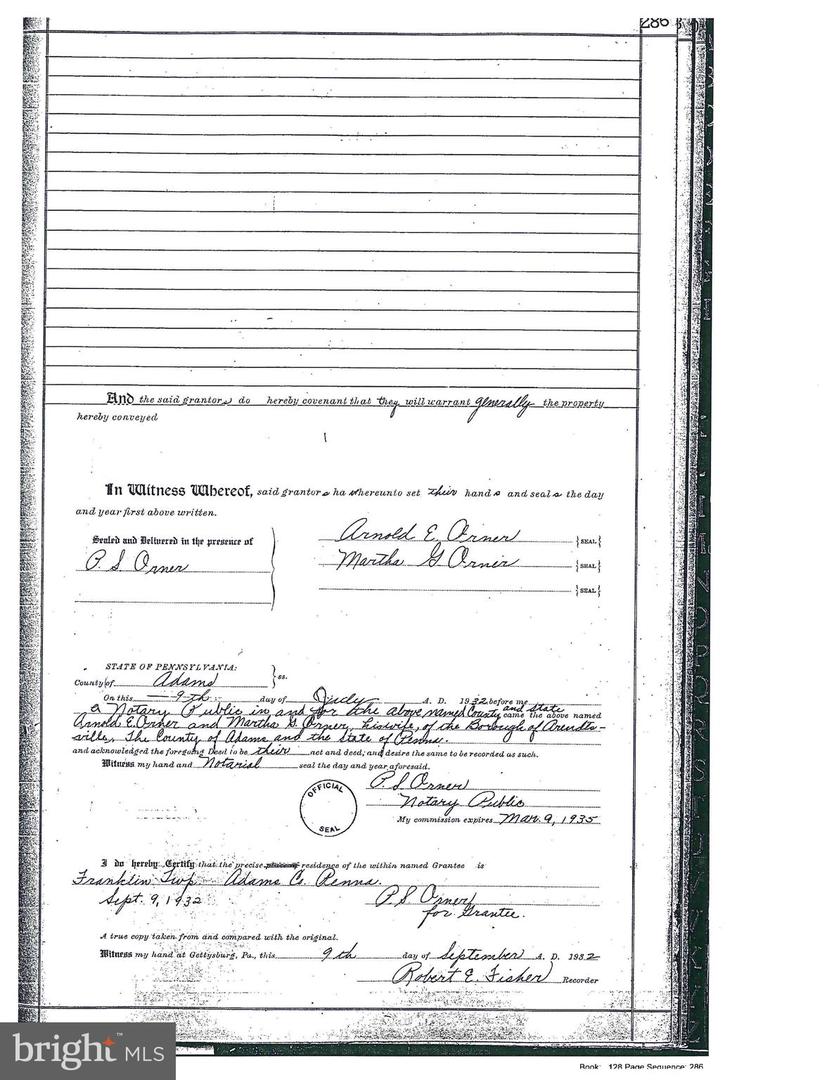 286
And the said grantors do hereby covenant that they will warrant generally the property
hereby conveyed
In Witness Whereof, said grantors ha whereunto set their hands and seals the day
and year first above written.
Sealed and Delivered in the presence of
P. S. Orner
Arnold E. Orner {SEAL}
Martha G Orner {SEAL}
{SEAL}
STATE OF PENNSYLVANIA:
County of Adams } ss.
On this 9-th day of July A. D. 1932 before me
a Notary Public in and for the above named County and State came the above named
Arnold E. Orner and Martha G. Orner, his wife, of the Borough of Arendts-
ville, the County of Adams and the State of Penna.
and acknowledged the foregoing Deed to be their act and deed, and desire the same to be recorded as such.
Witness my hand and Notarial seal the day and year aforesaid.
P. S. Orner
Notary Public
My commission expires Mar. 9, 1935
OFFICIAL
SEAL
I do hereby Certify that the precise residence of the within named Grantee is
Franklin Twp Adams Co. Penna.
Sept. 9, 1932
P S Orner
for Grantee.
A true copy taken from and compared with the original.
Witness my hand at Gettysburg, Pa., this 9th day of September A. D. 1932
Robert E. Fisher Recorder
bright MLS
Book: 128 Page Sequence: 286